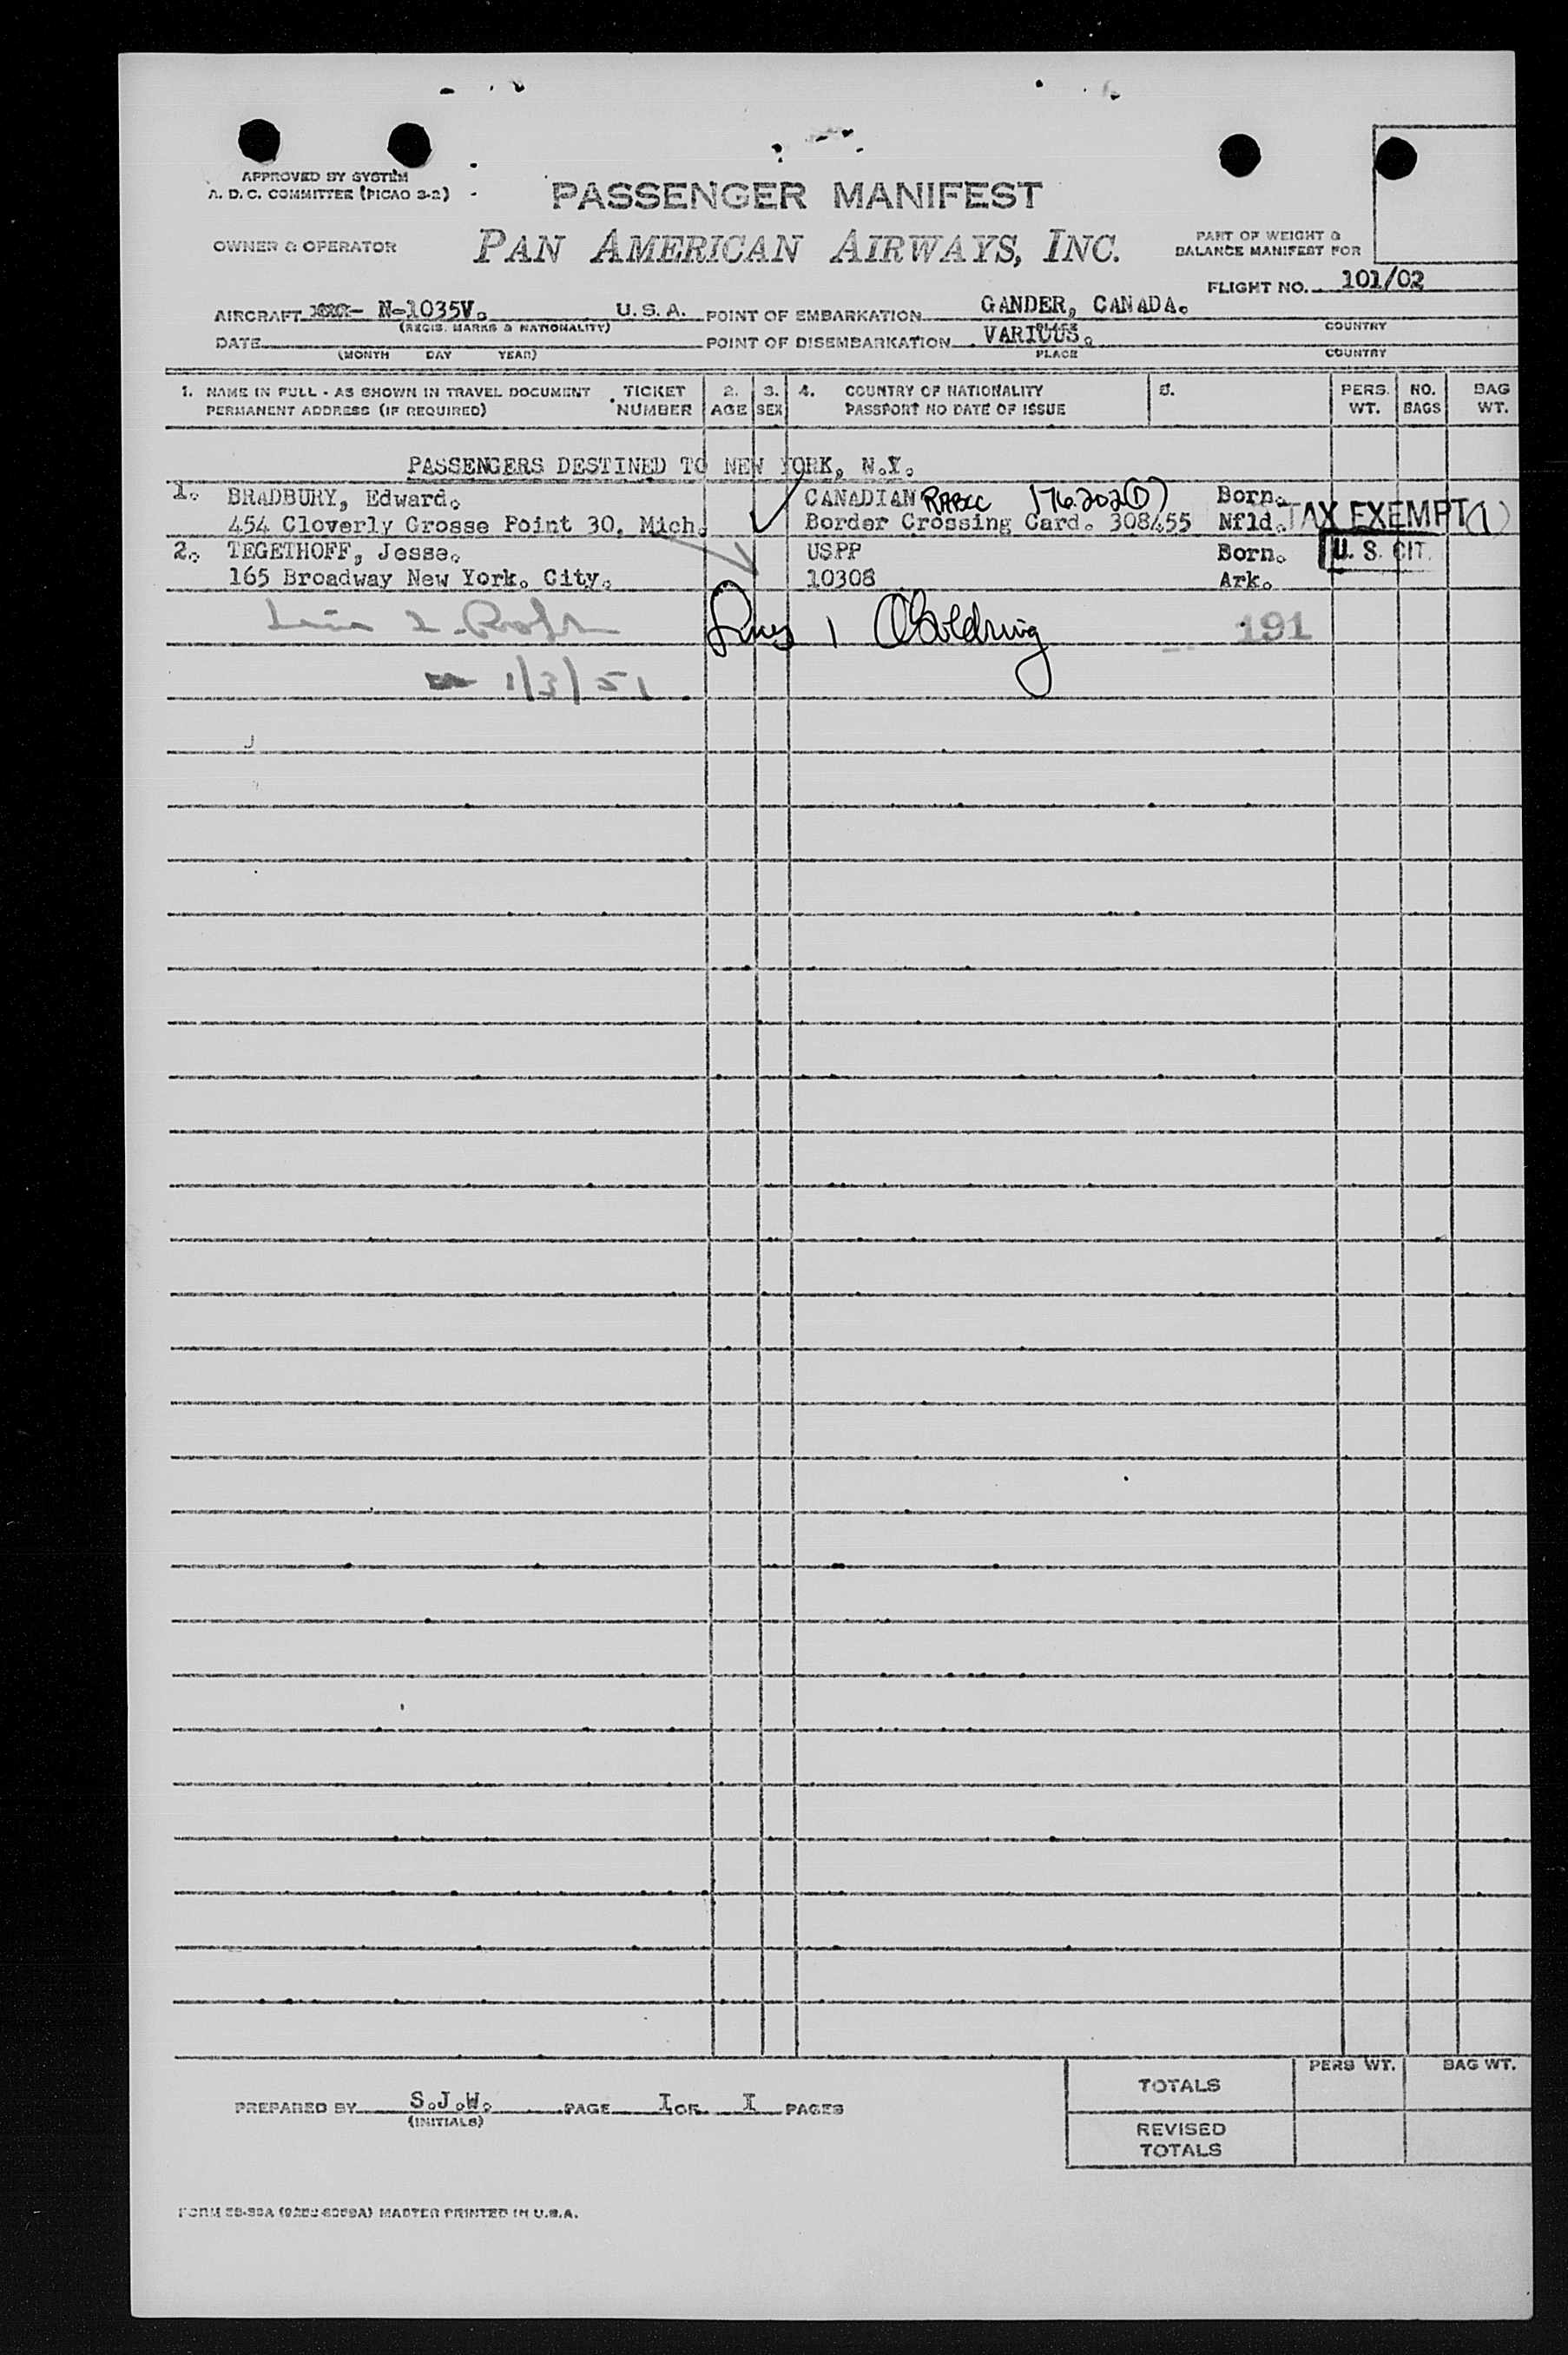 APPROVED BY SYSTEM
A. D. C. COMMITTEE (PICAO 3-2)
PASSENGER MANIFEST
OWNER & OPERATOR
PAN AMERICAN AIRWAYS, INC.
PART OF WEIGHT &
BALANCE MANIFEST FOR
FLIGHT NO. 101/02
AIRCRAFT N-1035V. U.S.A. POINT OF EMBARKATION GANDER, CANADA.
(REGIS. MARKS & NATIONALITY) PLACE COUNTRY
DATE POINT OF DISEMBARKATION VARIOUS.
(MONTH DAY YEAR) PLACE COUNTRY
1. NAME IN FULL - AS SHOWN IN TRAVEL DOCUMENT TICKET 2. 3. 4. COUNTRY OF NATIONALITY 5. PERS. NO. BAG
PERMANENT ADDRESS (IF REQUIRED) NUMBER AGE SEX PASSPORT NO DATE OF ISSUE WT. BAGS WT.
PASSENGERS DESTINED TO NEW YORK, N.Y.
1. BRADBURY, Edward. CANADIAN RABCC 176.202(D) Born.
454 Cloverly Grosse Point 30, Mich. Border Crossing Card. 308455 Nfld. TAX EXEMPT (1)
2. TEGETHOFF, Jesse. USPP Born. U. S. CIT.
165 Broadway New York. City. 10308 Ark.
1 191
1/3/51
PREPARED BY S.J.W. PAGE I OF I PAGES
(INITIALS)
PERS WT. BAG WT.
TOTALS
REVISED
TOTALS
MASTER PRINTED IN U.S.A.